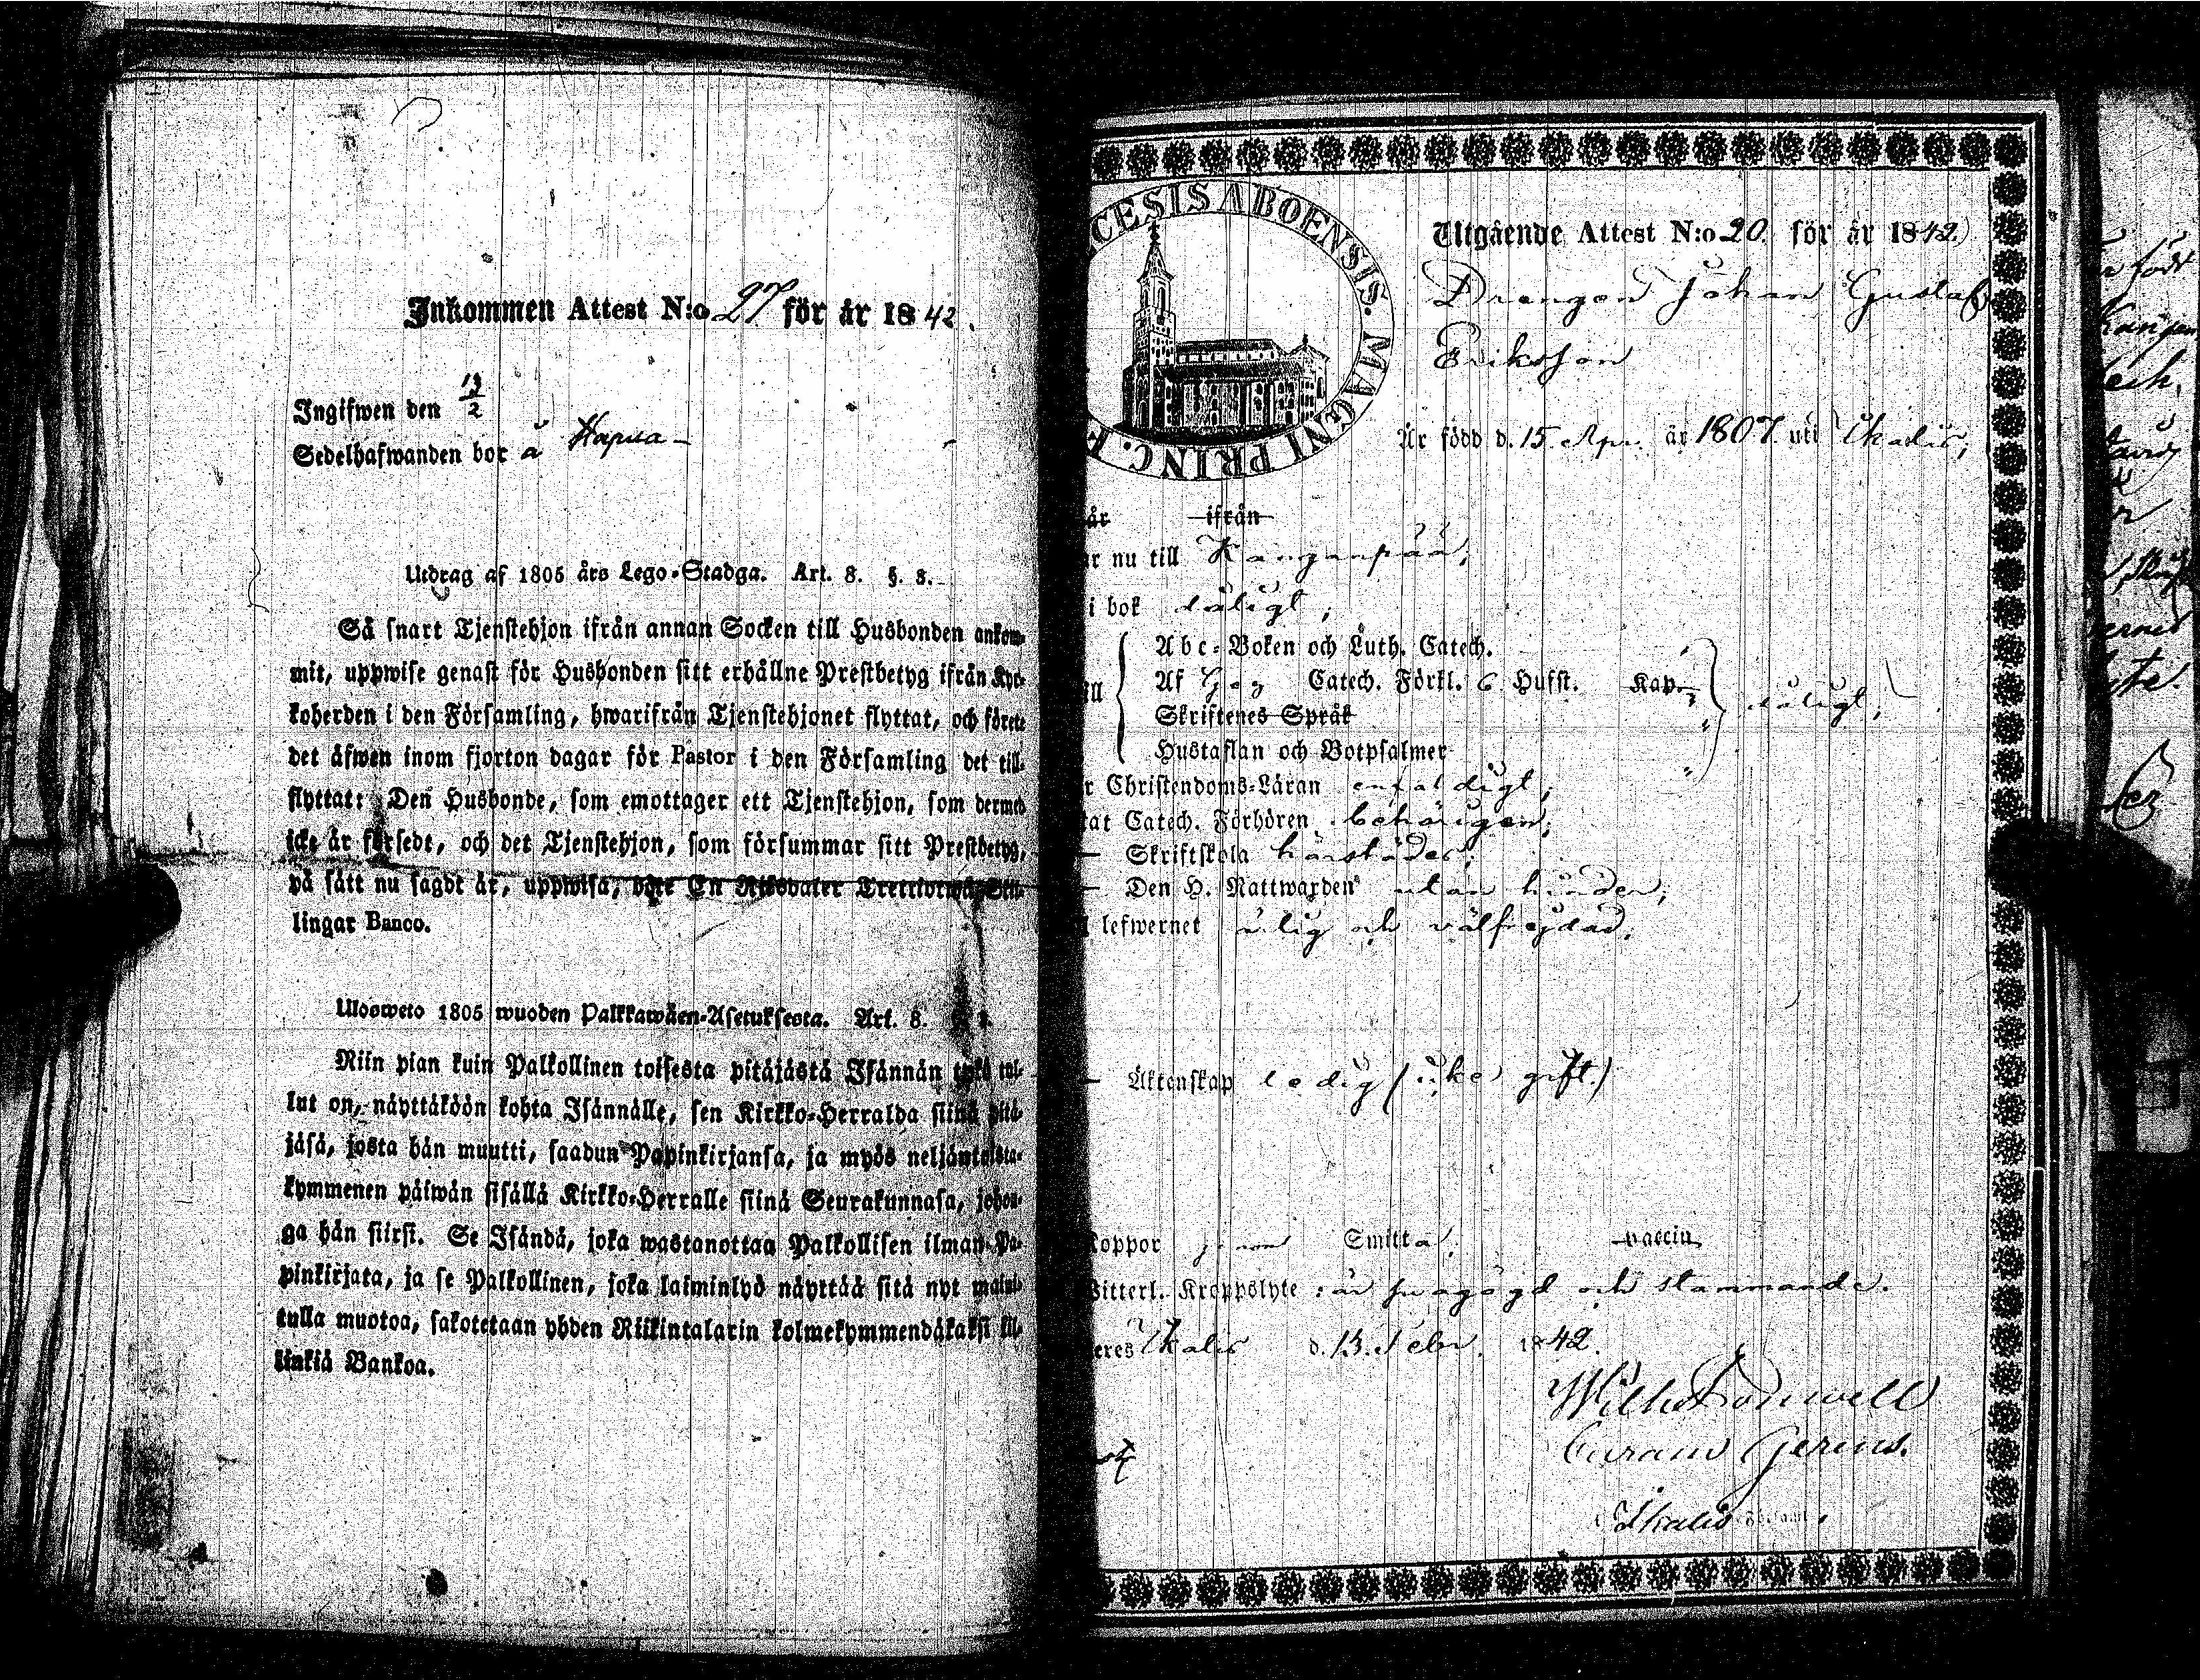 Inkommen Attest N:o 27 för år 1842.
Ingifwen den 19/2
Sedelhafwanden bor å Hapua
Utdrag af 1805 års Lego-Stadga. Art. 8. §. 3.
Så snart Tjenstehjon ifrån annan Socken till Husbonden ankom-
mit, uppwise genast för Husbonden sitt erhållne Prestbetyg ifrån Kyr-
koherden i den Församling, hwarifrån Tjenstehjonet flyttat, och förete
det äfwen inom fjorton dagar för Pastor i den Församling det till-
flyttat: Den Husbonde, som emottager ett Tjenstehjon, som dermed
icke är försedt, och det Tjenstehjon, som försummar sitt Prestbetyg,
på sätt nu sagdt är, uppwisa, böte En Riksdaler Trettiotwå Skil-
lingar Banco.
Ulosweto 1805 wuoden Palkkawäen-Asetuksesta. Art. 8. § 3.
Niin pian kuin Palkollinen toisesta pitäjästä Isännän tykö tul-
lut on, näyttäköön kohta Isännälle, sen Kirkko-Herralda siinä pitä-
jäsä, josta hän muutti, saadun Papinkirjansa, ja myös neljäntoista-
kymmenen päiwän sisällä Kirkko-Herralle siinä Seurakunnasa, johon-
ga hän siirsi. Se Isändä, joka wastanottaa Palkollisen ilman Pa-
pinkirjata, ja se Palkollinen, joka laiminlyö näyttää sitä nyt mainit-
tulla muotoa, sakotetaan yhden Riikintalarin kolmekymmendäkaksi kil-
linkiä Bankoa.
CESIS ABOENSIS. MAGNI PRINC. F
Utgående Attest N:o 20. för år 1842.)
Drängen Johan Gustaf
Eriksson
Är född d. 15 Apr. år 1807 uti Ikalis,
år ifrån
r nu till Kanganpää,
i bok dåligt,
Abc-Boken och Luth. Catech.
ill Af Catech. Förkl. 6 Hufst. Kap. dåligt,
Skriftenes Språk
Hustaflan och Botpsalmer
r Christendoms-Läran enfaldigt,
tat Catech. Förhören behörigen,
Skriftskola härstädes,
Den H. Nattwarden utan hinder,
lefwernet ärlig och välfrejdad.
Äktenskap ledig (icke gift.)
Koppor genom Smitta, vaccin
Witterl. Kroppslyte: är och stammande.
eres Ikalis d. 13. Febr. 1842.
Wilh
Curam Gerens.
Ikalis